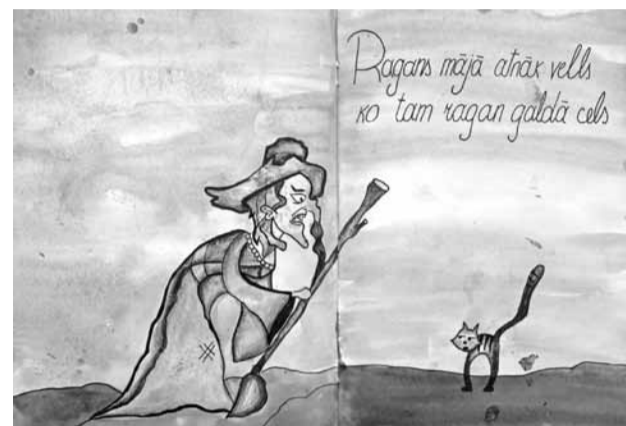 Ragans mājā atnāk vells
ko tam ragan galdā cels